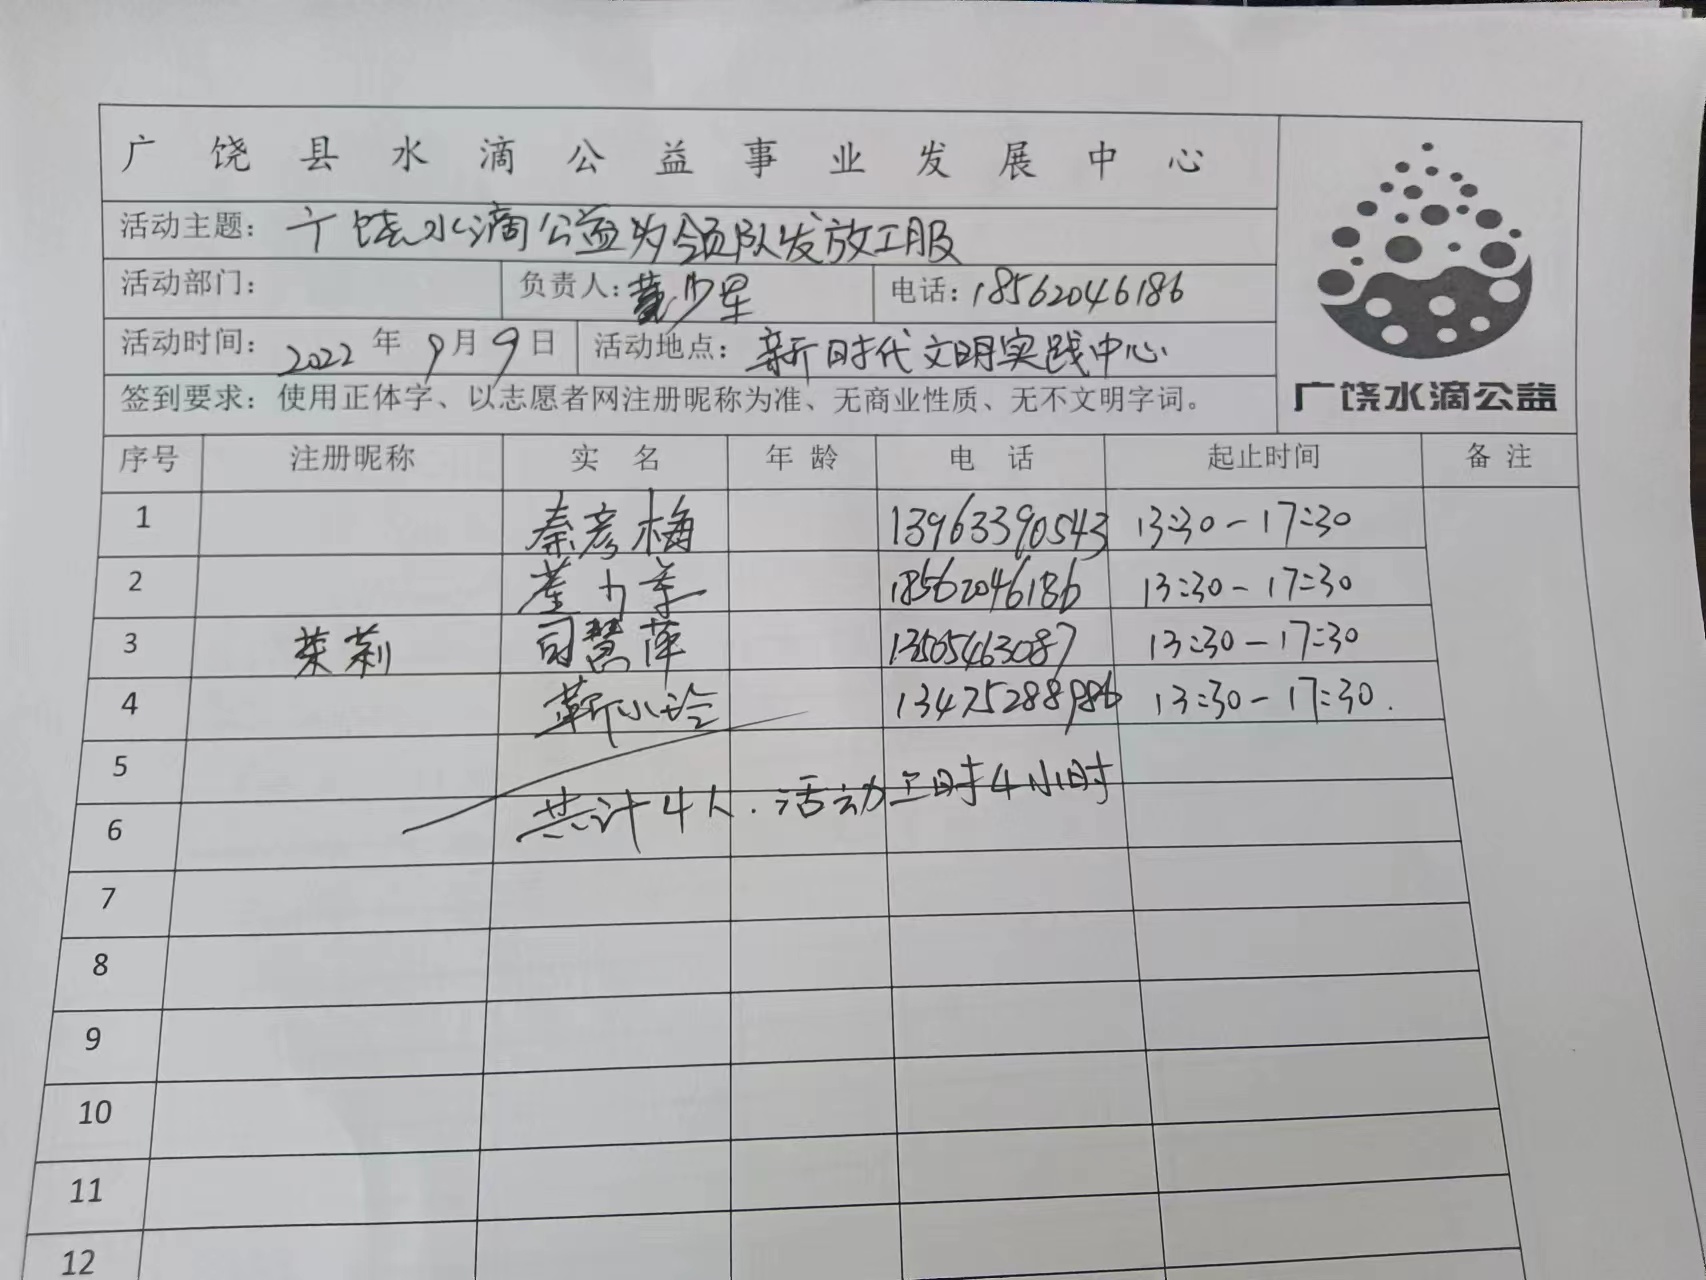 广饶县水滴公益事业发展中心
活动主题：广饶水滴公益为领队发放工服
活动部门： 负责人： 电话：18562046186
活动时间：2022年9月9日 活动地点：新时代文明实践中心
签到要求：使用正体字、以志愿者网注册昵称为准、无商业性质、无不文明字词。
广饶水滴公益
序号 注册昵称 实名 年龄 电话 起止时间 备注
1 秦彦梅 13963390543 13:30-17:30
2 18562046186 13:30-17:30
3 茉莉 司慧萍 13505463087 13:30-17:30
4 靳小玲 13475288986 13:30-17:30.
5
共计4人.活动工时4小时
6
7
8
9
10
11
12